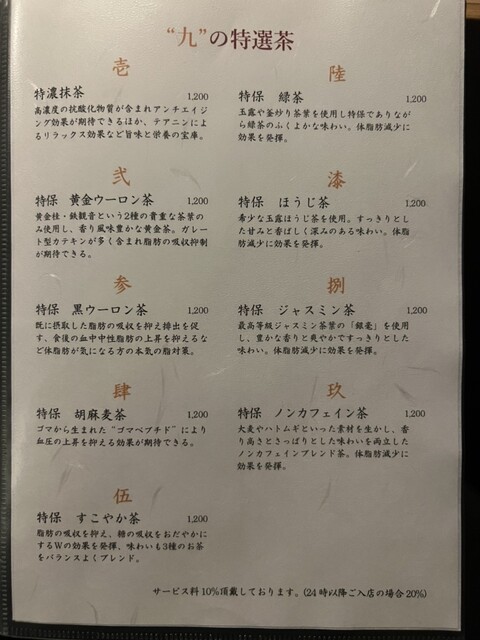 “九”の特選茶
壱
特濃抹茶 1,200
高濃度の抗酸化物質が含まれアンチエイジ
ング効果が期待できるほか、テアニンによ
るリラックス効果など旨味と栄養の宝庫。
弐
特保 黄金ウーロン茶 1,200
黄金桂・鉄観音という2種の貴重な茶葉の
み使用し、香り風味豊かな黄金茶。ガレー
ト型カテキンが多く含まれ脂肪の吸収抑制
が期待できる。
参
特保 黒ウーロン茶 1,200
既に摂取した脂肪の吸収を抑え排出を促
す、食後の血中中性脂肪の上昇を抑えるな
ど体脂肪が気になる方の本気の脂対策。
肆
特保 胡麻麦茶 1,200
ゴマから生まれた“ゴマペプチド”により
血圧の上昇を抑える効果が期待できる。
伍
特保 すこやか茶 1,200
脂肪の吸収を抑え、糖の吸収をおだやかに
するWの効果を発揮、味わいも3種のお茶
をバランスよくブレンド。
陸
特保 緑茶 1,200
玉露や釜炒り茶葉を使用し特保でありなが
ら緑茶のふくよかな味わい。体脂肪減少に
効果を発揮。
漆
特保 ほうじ茶 1,200
希少な玉露ほうじ茶を使用。すっきりとし
た甘みと香ばしく深みのある味わい。体脂
肪減少に効果を発揮。
捌
特保 ジャスミン茶 1,200
最高等級ジャスミン茶葉の「銀毫」を使用
し、豊かな香りと爽やかですっきりとした
味わい。体脂肪減少に効果を発揮。
玖
特保 ノンカフェイン茶 1,200
大麦やハトムギといった素材を生かし、香
り高さとさっぱりとした味わいを両立した
ノンカフェインブレンド茶。体脂肪減少に
効果を発揮。
サービス料10%頂戴しております。(24時以降ご入店の場合20%)